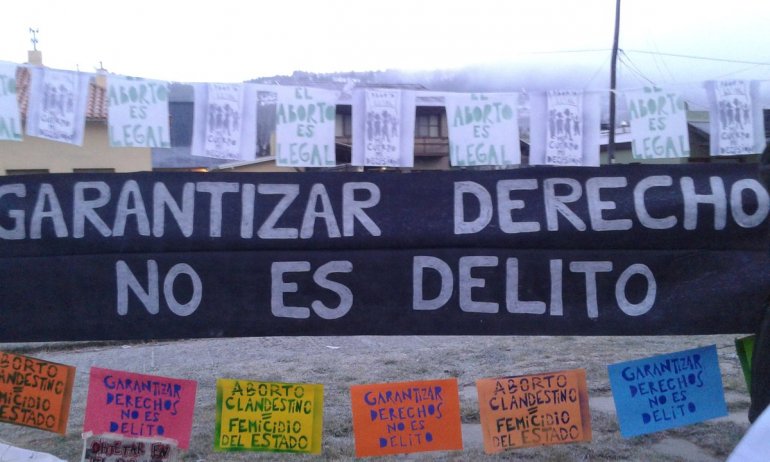 ABORTO
ES
LEGAL
EL
ABORTO
ES
LEGAL
EL
ABORTO
ES
LEGAL
EL
GARANTIZAR DERECHO
NO ES DELITO
ABORTO
CLANDESTINO
=
FEMICIDIO
DEL ESTADO
GARANTIZAR
DERECHOS
NO ES
DELITO
ABORTO
CLANDESTINO
=
FEMICIDIO
DEL ESTADO
GARANTIZAR
DERECHOS
NO ES
DELITO
ABORTO
CLANDESTINO
=
FEMICIDIO
DEL ESTADO
GARANTIZAR
DERECHOS
NO ES
DELITO